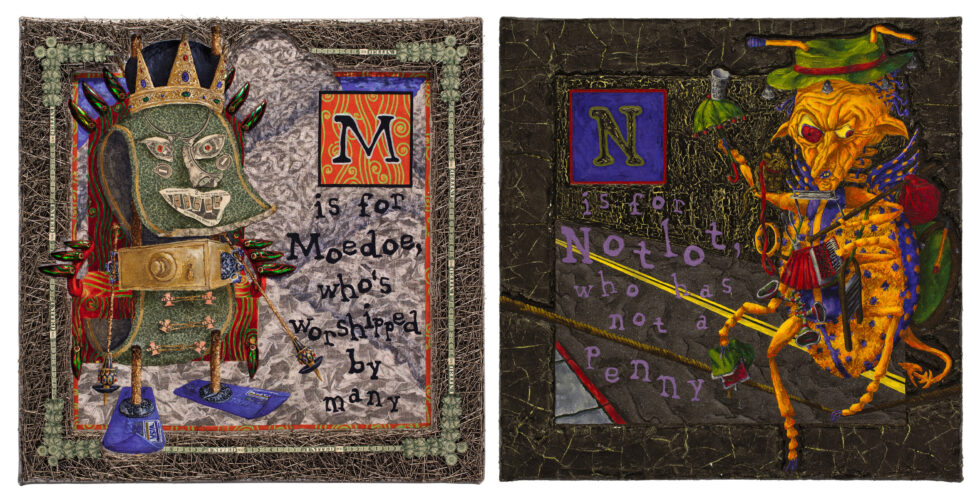 M
is for
Moedoe,
who's
worshipped
by
many
VISA
N
is for
Notlot,
who has
not a
Penny